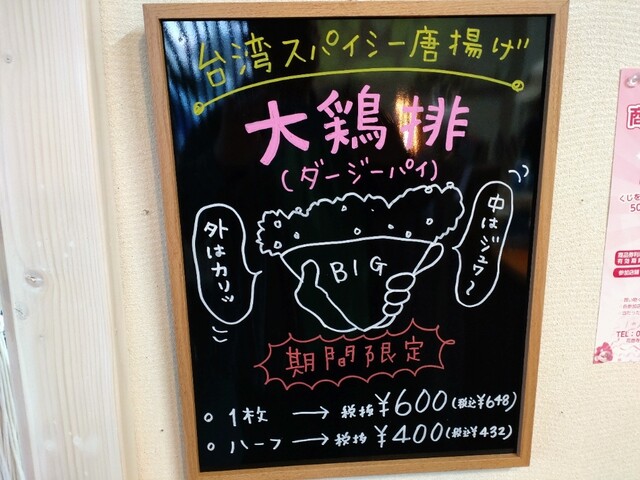 台湾スパイシー唐揚げ
大鶏排
(ダージーパイ)
外はカリッ
中はジュワ~
BIG
期間限定
1枚 → 税抜¥600(税込¥648)
ハーフ → 税抜¥400(税込¥432)
くじを
50
TEL:0